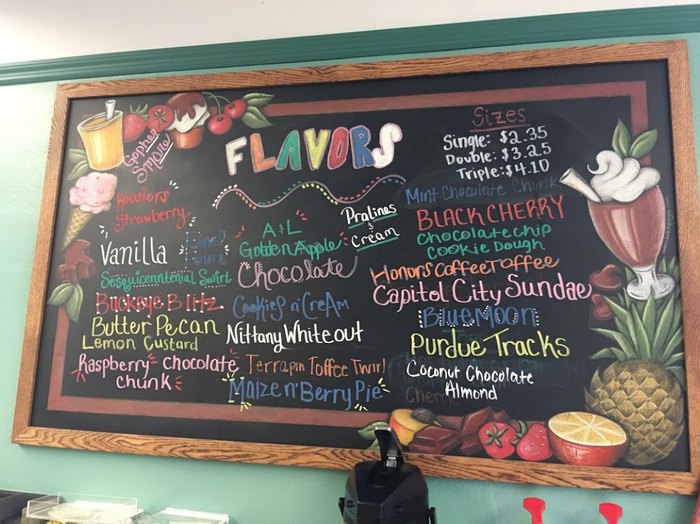 FLAVORS
Sizes
Single: $2.35
Double: $3.25
Triple: $4.10
Gopher
Smores
Hoosiers
Strawberry
Vanilla
Sesquicenntenial Swirl
Buckeye Blitz
Butter Pecan
Lemon Custard
Raspberry-Chocolate
chunk
A&L
Golden Apple
Chocolate
Cookies n' Cream
Nittany Whiteout
Terrapin Toffee Twirl
Maize n' Berry Pie
Pralines
&
Cream
Mint Chocolate Chunk
BLACK CHERRY
Chocolate chip
Cookie Dough
Honors Coffee Toffee
Capitol City Sundae
Blue Moon
Purdue Tracks
Coconut Chocolate
Almond